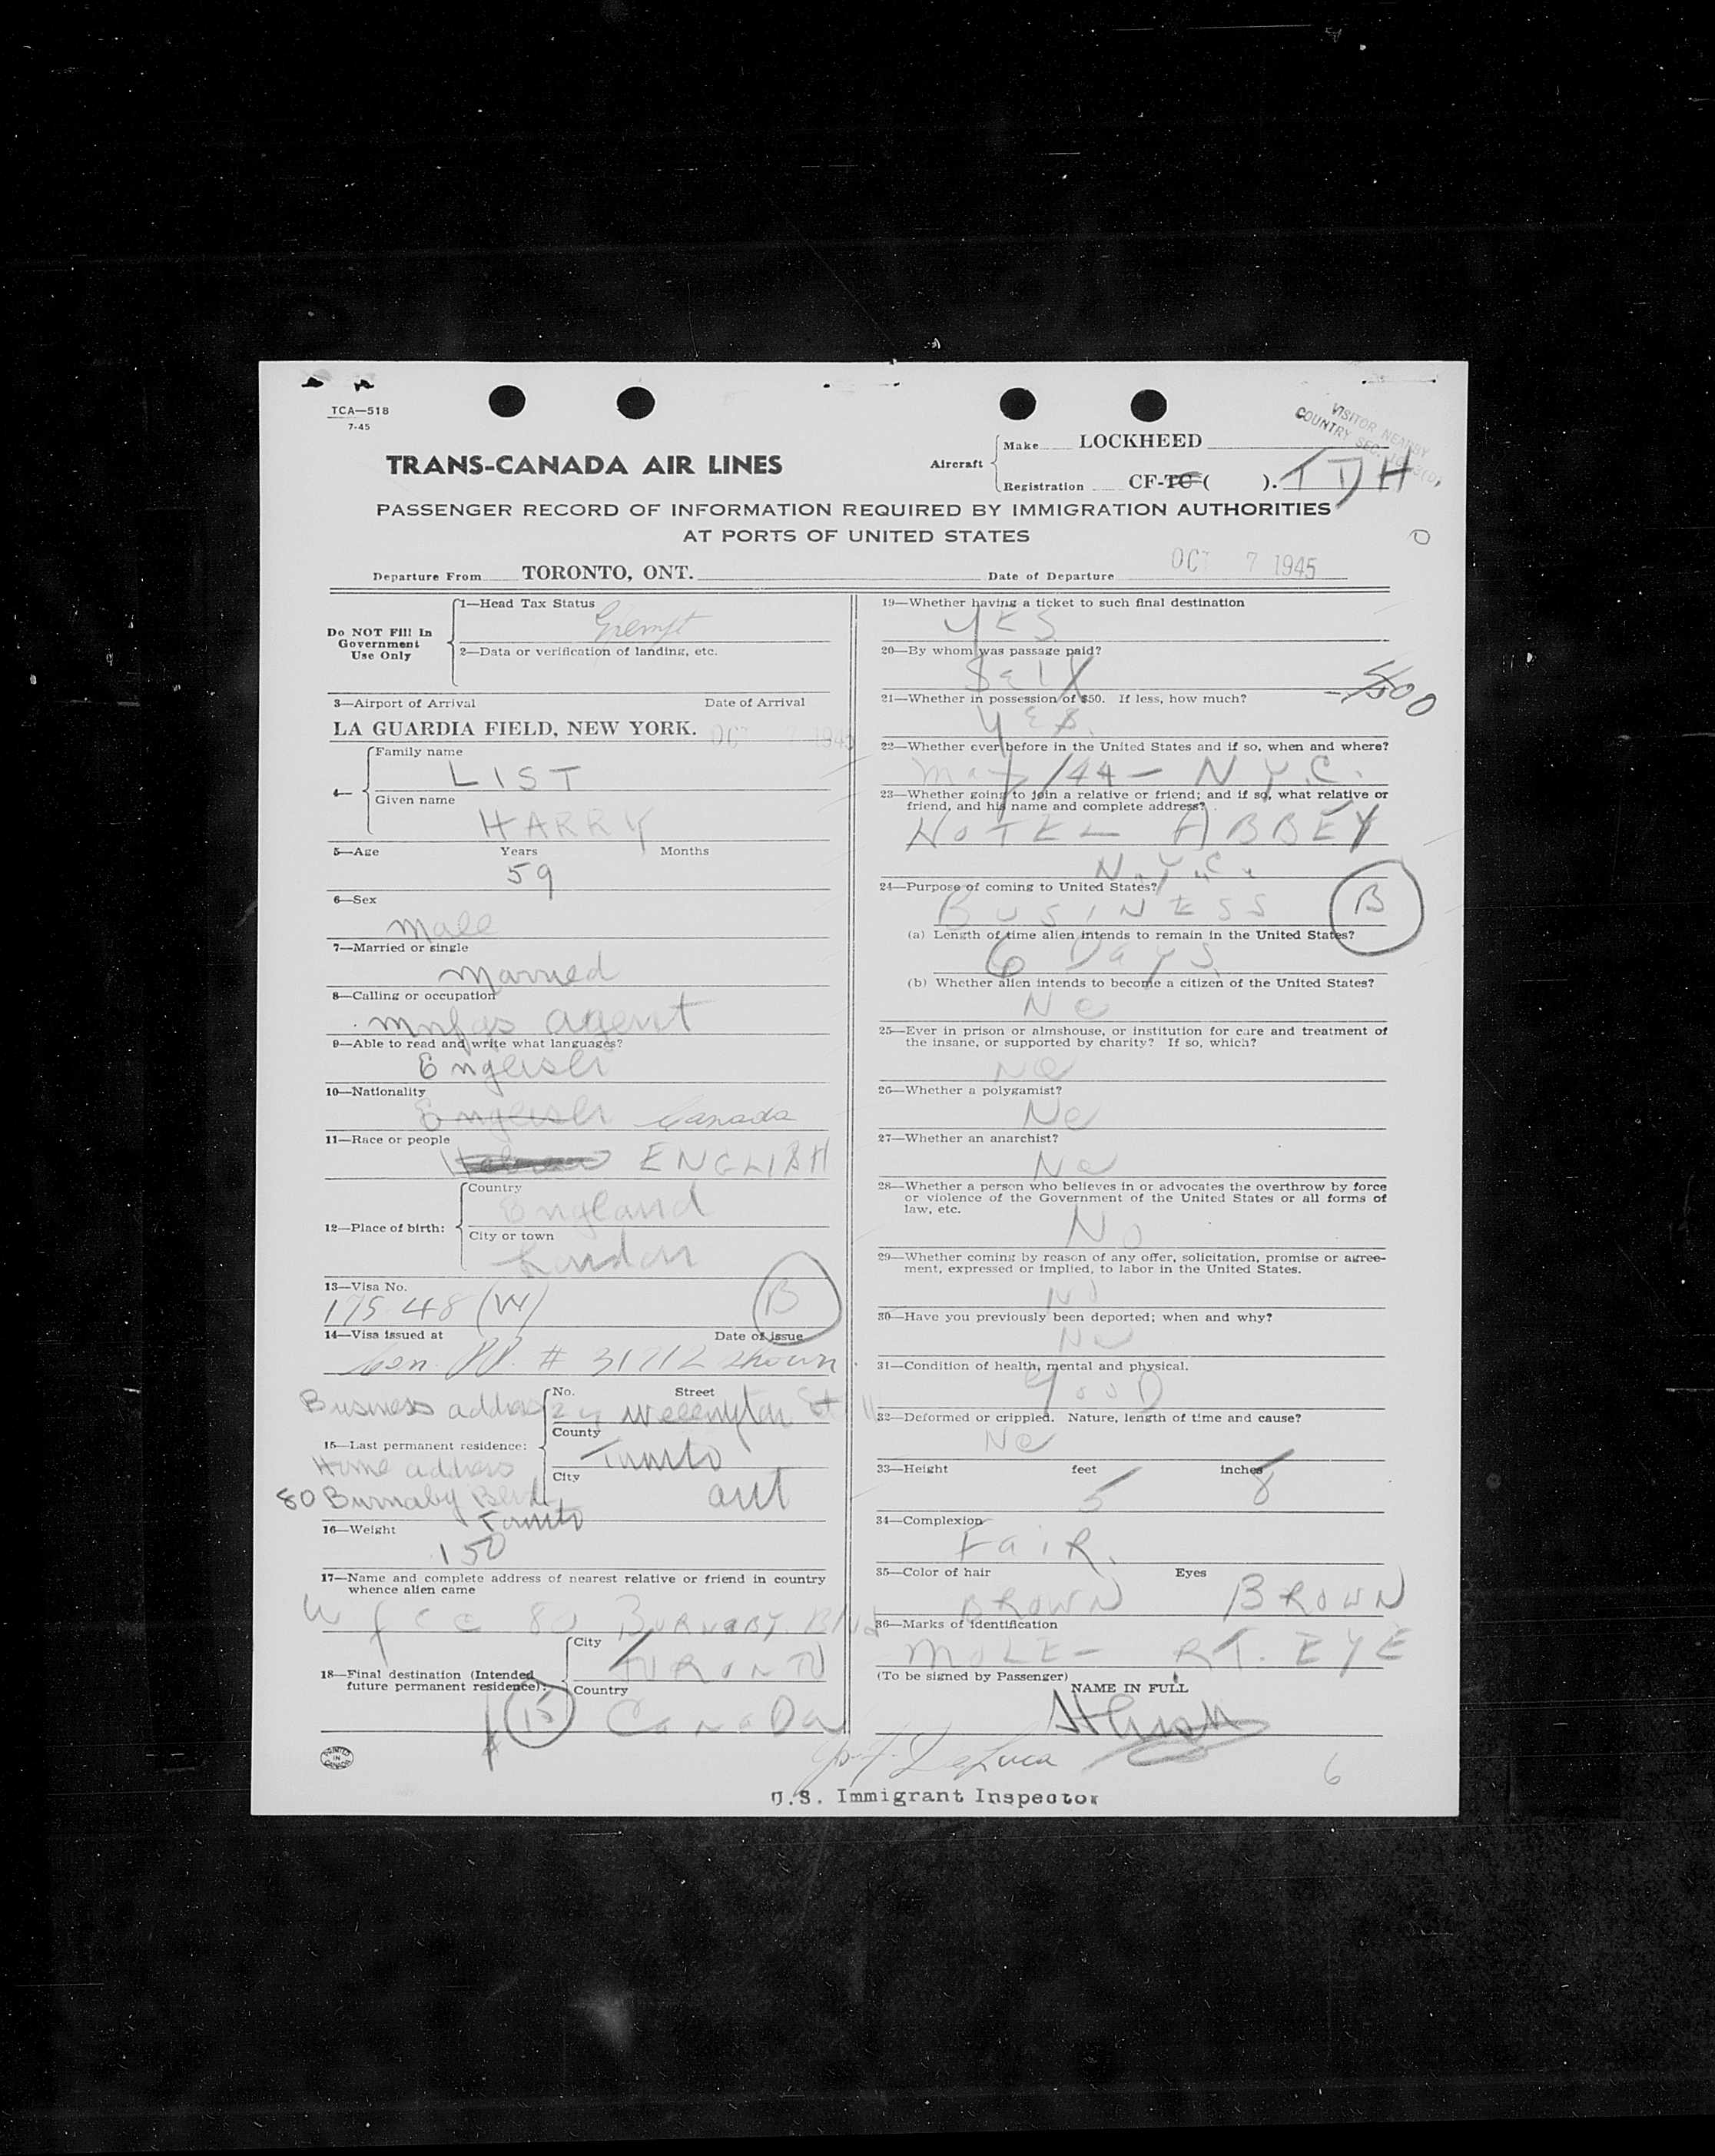 TCA—518
7-45
VISITOR NEARBY
COUNTRY SEC.
TRANS-CANADA AIR LINES
Aircraft
Make LOCKHEED
Registration CF-TC ( ). TDH
PASSENGER RECORD OF INFORMATION REQUIRED BY IMMIGRATION AUTHORITIES
AT PORTS OF UNITED STATES
O
Departure From TORONTO, ONT. Date of Departure OCT 7 1945
Do NOT Fill In
Government
Use Only
1—Head Tax Status
Exempt
2—Data or verification of landing, etc.
3—Airport of Arrival Date of Arrival
LA GUARDIA FIELD, NEW YORK. OCT 7 1945
4—
Family name
LIST
Given name
HARRY
5—Age Years Months
59
6—Sex
Male
7—Married or single
Married
8—Calling or occupation
Mnfgs agent
9—Able to read and write what languages?
English
10—Nationality
English Canada
11—Race or people
Hebrew ENGLISH
12—Place of birth:
Country
England
City or town
London
13—Visa No.
17548 (W) B
14—Visa issued at Date of issue
Can. PP. # 31712 shown
Business address
No. Street
24 Wellington St
County
15—Last permanent residence:
Toronto
Home address
City
80 Burnaby Blvd
Ont
Toronto
16—Weight
150
17—Name and complete address of nearest relative or friend in country
whence alien came
Wife 80 BURNABY. Blvd
18—Final destination (Intended
future permanent residence):
City
TORONTO
Country
15 CANADA
PRINTED
IN
CANADA
19—Whether having a ticket to such final destination
YES
20—By whom was passage paid?
Self
21—Whether in possession of $50. If less, how much?
YES. 500
22—Whether ever before in the United States and if so, when and where?
May /44 — N.Y.C.
23—Whether going to join a relative or friend; and if so, what relative or
friend, and his name and complete address?
HOTEL ABBEY
N.Y.C.
24—Purpose of coming to United States?
BUSINESS B
(a) Length of time alien intends to remain in the United States?
6 Days
(b) Whether alien intends to become a citizen of the United States?
No
25—Ever in prison or almshouse, or institution for care and treatment of
the insane, or supported by charity? If so, which?
No
26—Whether a polygamist?
No
27—Whether an anarchist?
No
28—Whether a person who believes in or advocates the overthrow by force
or violence of the Government of the United States or all forms of
law, etc.
No
29—Whether coming by reason of any offer, solicitation, promise or agree-
ment, expressed or implied, to labor in the United States.
No
30—Have you previously been deported; when and why?
No
31—Condition of health, mental and physical.
GOOD
32—Deformed or crippled. Nature, length of time and cause?
No
33—Height feet inches
5 8
34—Complexion
FAIR.
35—Color of hair Eyes
BROWN BROWN
36—Marks of identification
MOLE - RT. EYE
(To be signed by Passenger)
NAME IN FULL
H List
DeLuca
6
U.S. Immigrant Inspector